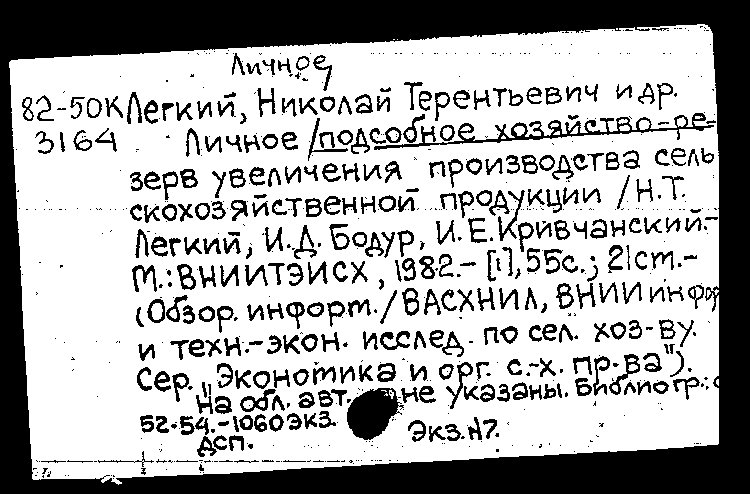 Личное,
82-50К Легкий, Николай Терентьевич и др.
3164 Личное /подсобное хозяйство-ре-
зерв увеличения производства сель
скохозяйственной продукции /Н.Т.
Легкий, И.Д. Бодур, И.Е. Кривчанский.-
М.: ВНИИТЭИСХ, 1982.- [1], 55с.; 21ст.-
(Обзор. информ./ ВАСХНИЛ, ВНИИ инфор
и техн.-экон. исслед. по сел. хоз-ву.
Сер. „Экономика и орг. с.-х. пр-ва").
На обл. авт. не указаны. Библиогр.: с
52-54.-1060 экз.
ДСП. Экз.N7.